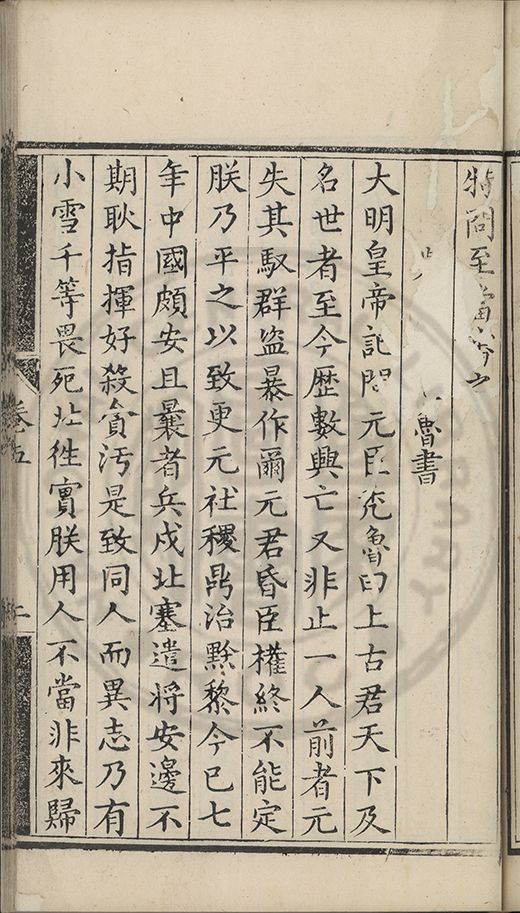 特問至
魯書
大明皇帝記問元臣禿魯曰上古君天下及
名世者至今歷數興亡又非止一人前者元
失其馭群盜暴作爾元君昏臣權終不能定
朕乃平之以致更元社稷昺治黔黎今已七
年中國頗安且曩者兵戍北塞遣將安邊不
期耿指揮好殺貪汚是致同人而異志乃有
小雪千等畏死北徃實朕用人不當非來歸
卷五